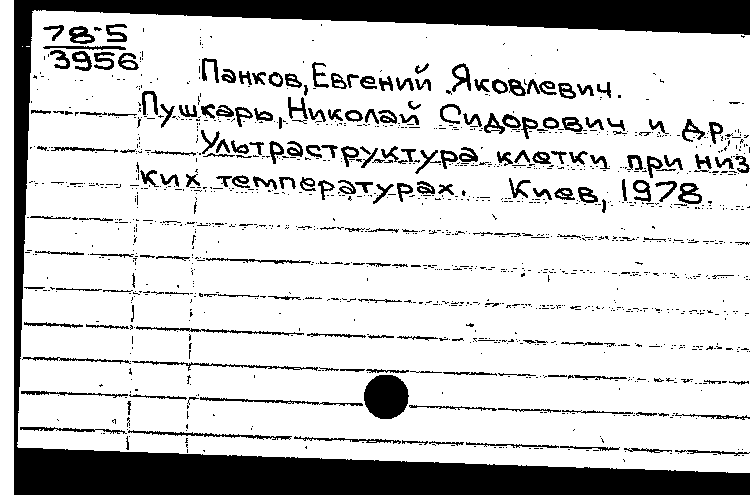 78-5
3956
Панков, Евгений Яковлевич.
Пушкарь, Николай Сидорович и др.
Ультраструктура клетки при низ
ких температурах. Киев, 1978.